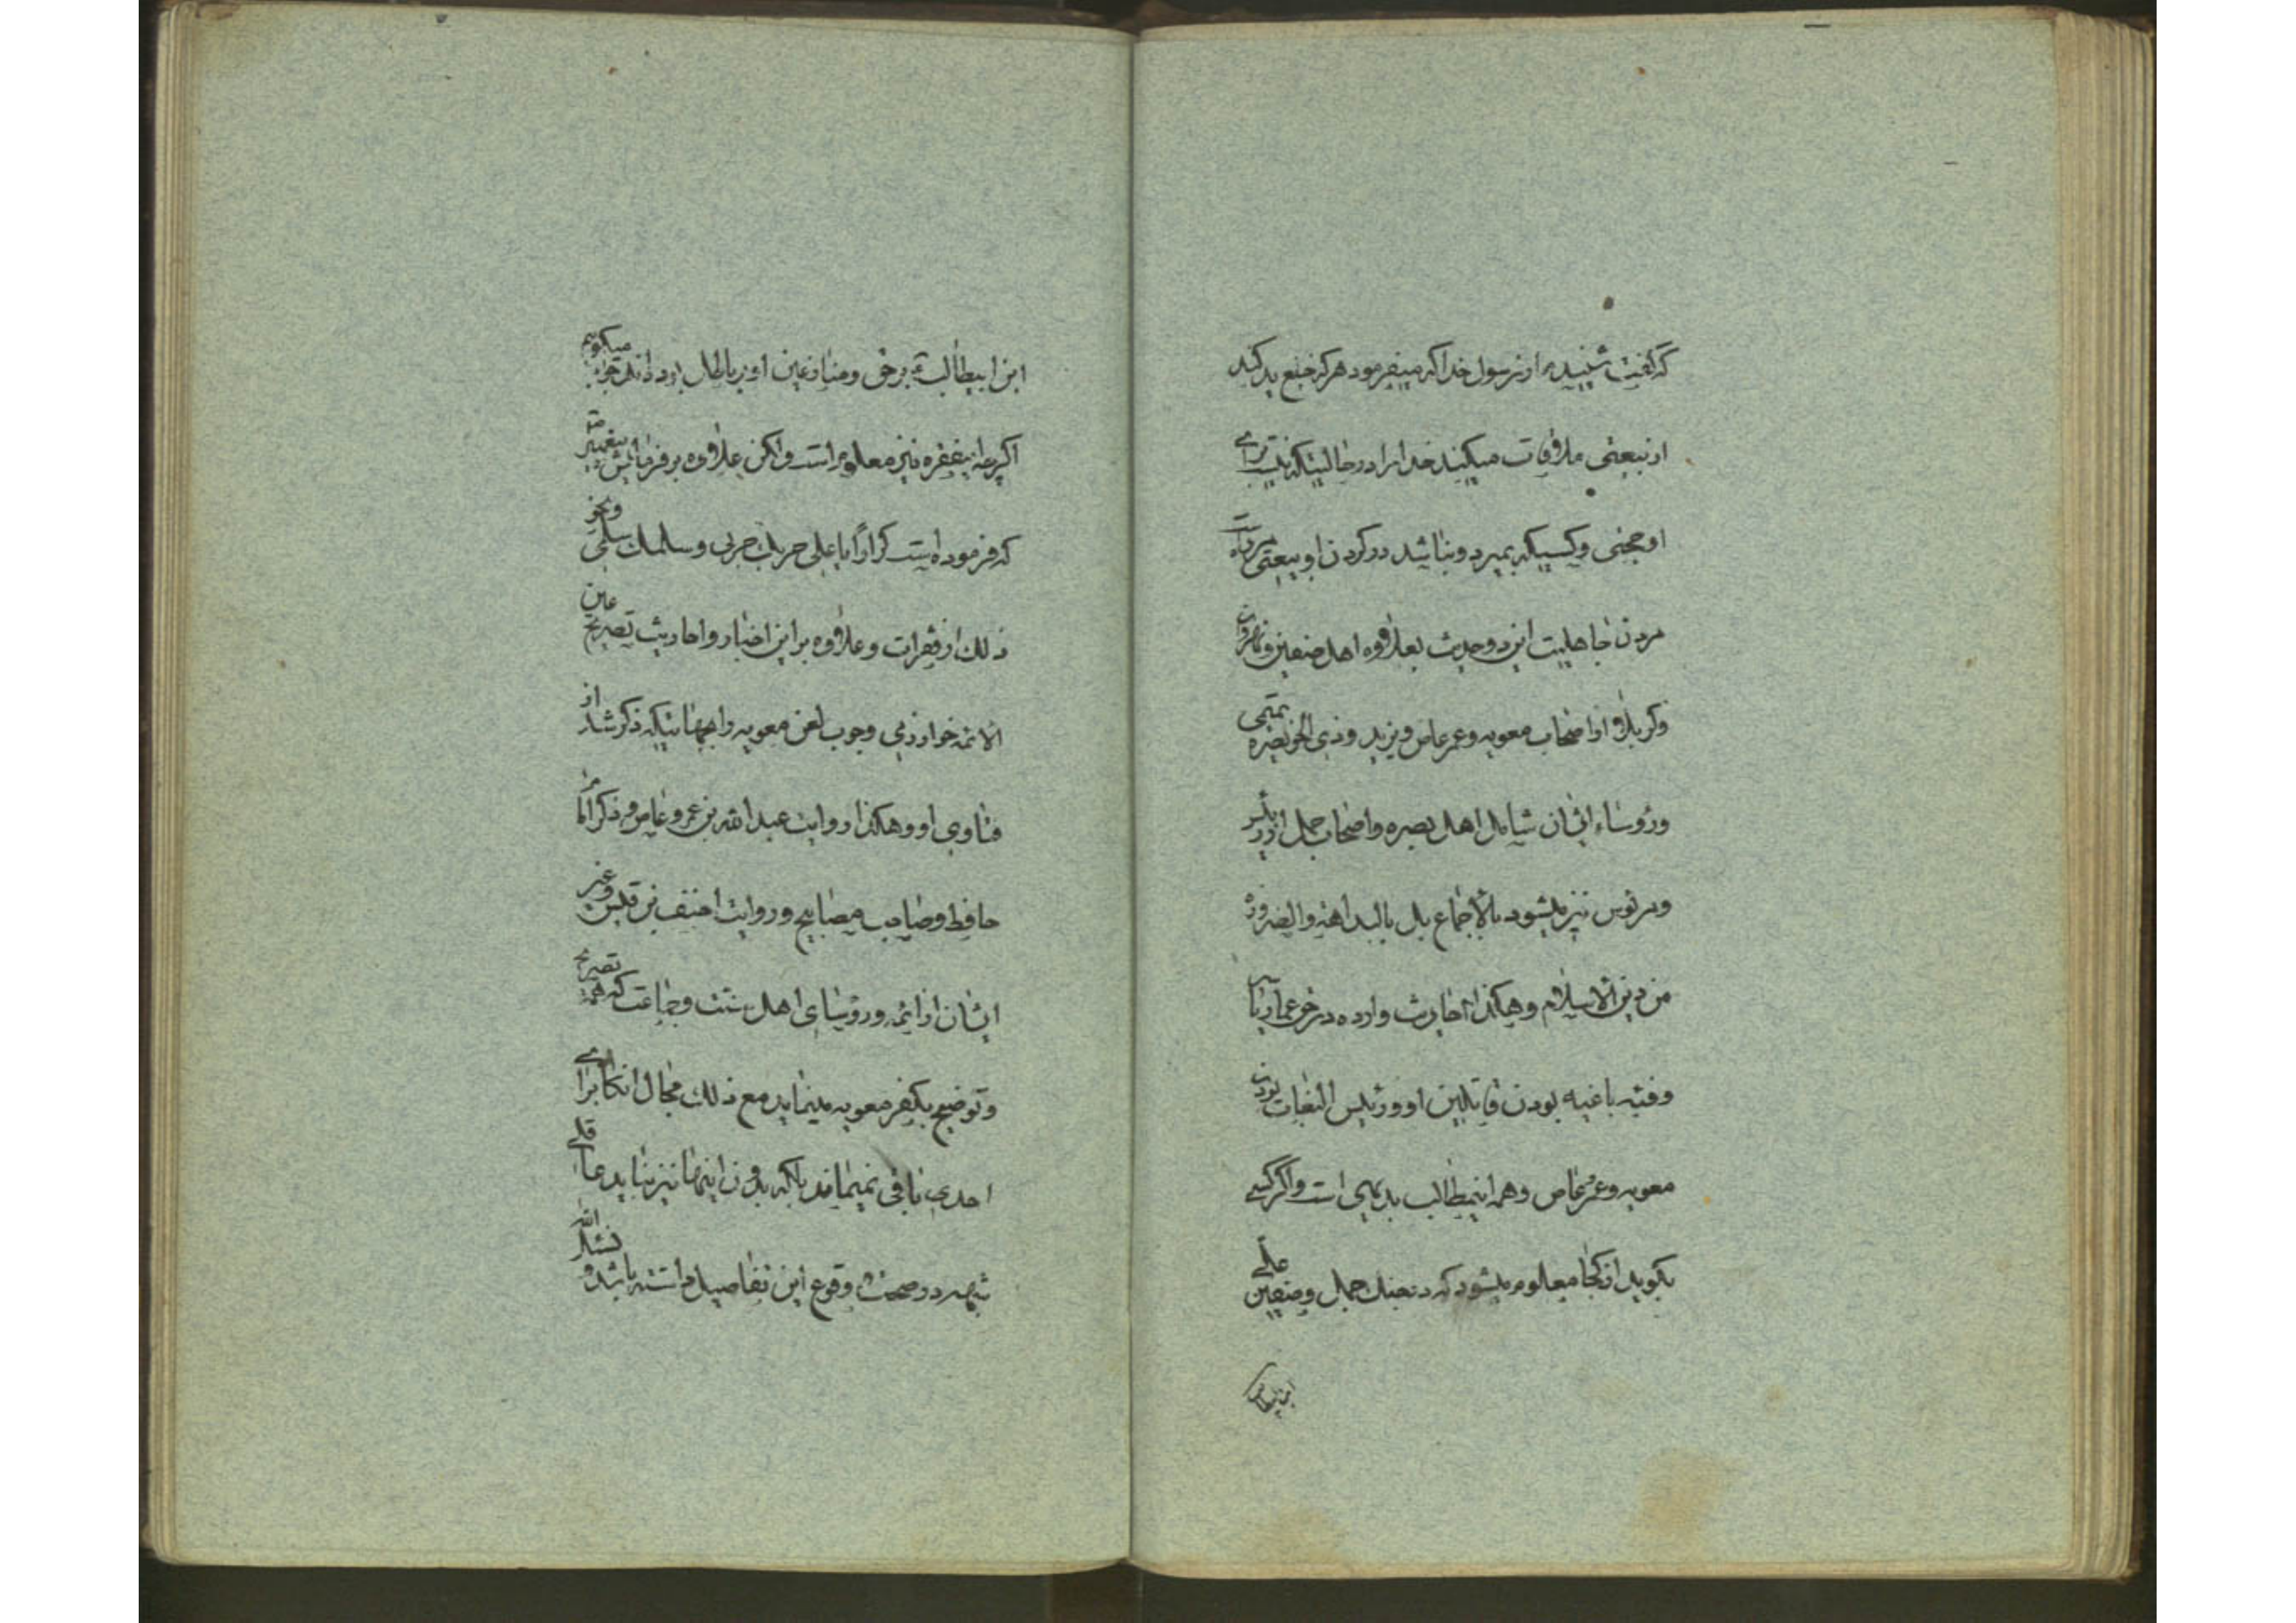 که گفت شنیدم از رسول خدا که میفرمود هر که خلع ید کند
از بیعتی ملاقات میکند خدا را در حالیتکه نیست برای
او حجتی و کسیکه بمیرد و نباشد در کردن او بیعتی مرده است
مردن جاهلیت این دو حدیث بعلاوه اهل صفین و نهروان
و کربلا و از اصحاب معویه و عمر عاص و یزید و ذی الخویصره تمیمی
و رؤساء ایشان شامل اهل بصره و اصحاب جمل از
و مرئوس نیز میشود بالاجماع بل بالبداهة و الضرورة
من دین الاسلام و هکذا احادیث وارده در حق عمار یاسر
و فئه باغیه بودن قاتلین او و رئیس البغات بودن
معویه و عمر عاص و همه اینمطالب بدیهی است و اگر کسی
بگوید از کجا معلوم میشود که در جنک جمل و صفین علی
ابن ابیطالب
ابن ابیطالب ع بر حق و منازعین او بر باطل بودند جواب میگویم
اگر چه اینفقره نیز معلوم است ولکن علاوه بر فرمایش پیغمبر ص
که فرموده است کرارًا یا علی حربك حربی و سلمك سلمی و نحو
ذلك از فقرات و علاوه بر این اخبار و احادیث تصریح عین
الائمه خوارزمی وجوب لعن معویه را بجهاتیکه ذکر شد از
فتاوی او و هکذا روایت عبد الله بن عمرو عاص و ذکر امام
حافظ و صاحب مصابیح و روایت احنف بن قیس و غیر
ایشان از ائمه و رؤسای اهل سنت و جماعت که همه تصریح
و توضیح بکفر معویه مینماید مع ذلك مجال انکار برای
احدی باقی نمیماند بلکه بدون اینها نیز نباید عاقلی
شبهه در صحت وقوع این تفاصیل داشته باشد و نشکر الله